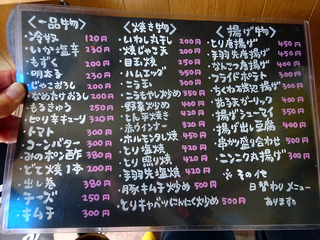 <一品物>
・冷奴 120円
・いか塩辛 230円
・もずく 200円
・明太子 230円
・じゃこおろし 200円
・なめ茸おろし 200円
・もろきゅう 250円
・ピリ辛キューリ 320円
・トマト 300円
・コーンバター 300円
・ポン酢 380円
・どて焼1本 200円
・出し巻 380円
・チーズ 250円
・キムチ 300円
<焼き物>
・いわし丸干し 200円
・焼じゃこ天 200円
・目玉焼 250円
・ハムエッグ 350円
・ニラ玉
・野菜炒め 400円
・とん平焼 400円
・赤ウインナー 320円
・ホルモン焼 450円
・とり塩焼 400円
・とり照り焼 420円
・手羽先塩焼 420円
・豚キムチ炒め 500円
・とりキャベツにんにく炒め 500円
<揚げ物>
・とり唐揚げ 450円
・手羽先唐揚げ 450円
・なんこつ唐揚げ 400円
・フライドポテト 300円
・ちくわ磯辺揚げ 300円
・赤ウインナー 400円
・揚げシューマイ 350円
・揚げ出し豆腐 400円
・串かつ盛り合わせ 500円
・ニンニク丸揚げ 300円
※その他
日替わりメニュー
あります。